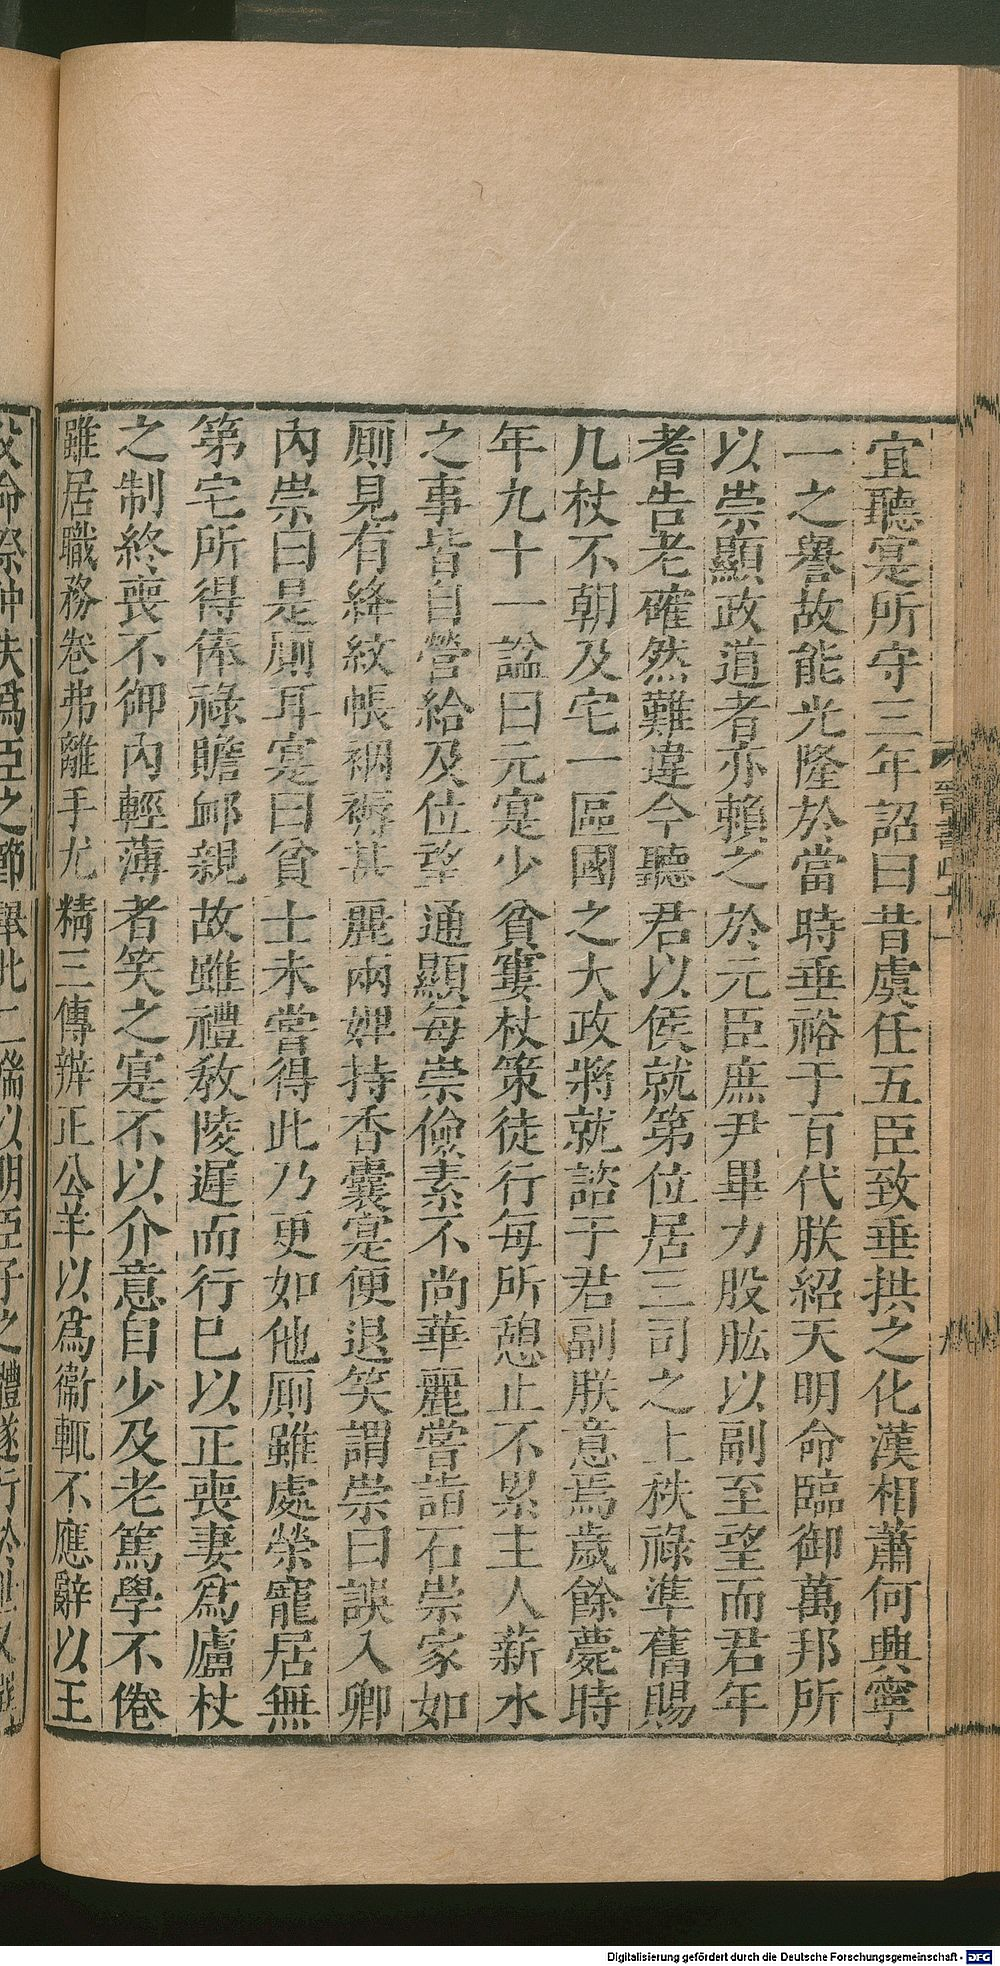 宜聽寔所守三年詔曰昔虞任五臣致垂拱之化漢相蕭何興寧
一之譽故能光隆於當時垂裕于百代朕紹天明命臨御萬邦所
以崇顯政道者亦賴之於元臣庶尹畢力股肱以副至望而君年
耆告老確然難違今聽君以侯就第位居三司之上秩祿準舊賜
几杖不朝及宅一區國之大政將就諮于君副朕意焉歲餘薨時
年九十一諡曰元寔少貧窶杖策徒行每所憩止不累主人薪水
之事皆自營給及位望通顯每崇儉素不尚華麗嘗詣石崇家如
廁見有絳紋帳裀褥甚麗兩婢持香囊寔便退笑謂崇曰誤入卿
內崇曰是廁耳寔曰貧士未嘗得此乃更如他廁雖處榮寵居無
第宅所得俸祿贍卹親故雖禮敎陵遲而行已以正喪妻爲廬杖
之制終喪不御內輕薄者笑之寔不以介意自少及老篤學不倦
雖居職務卷弗離手尤精三傳辨正公羊以爲衞輒不應辭以王
父命祭仲失爲臣之節舉此二端以明臣子之體遂行於世又撰
晉書
Digitalisierung gefördert durch die Deutsche Forschungsgemeinschaft - DFG